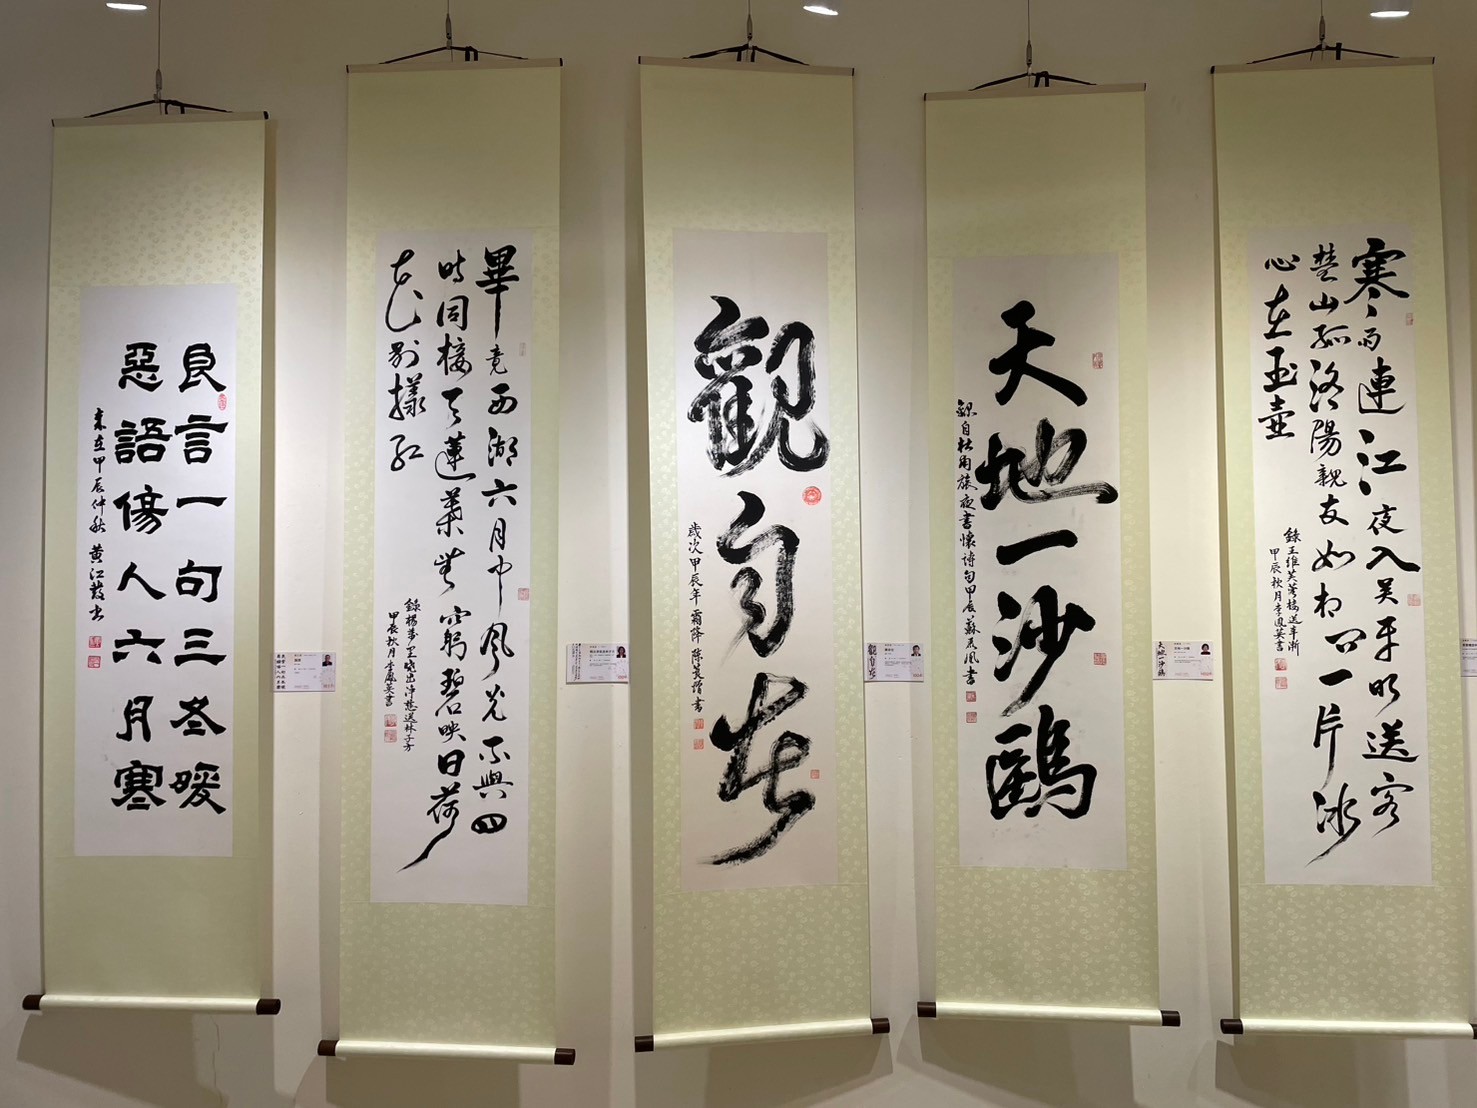 良言一句三冬暖
惡語傷人六月寒
歲在甲辰仲秋 黄江發书
畢竟西湖六月中風光不與四
時同接天蓮葉無窮碧映日荷
花別樣紅
錄楊萬里曉出淨慈送林子方
甲辰秋月李鳳英書
觀自在
歲次甲辰年霜降 陳書
天地一沙鷗
錄自杜甫旅夜書懷詩句甲辰蘇風書
寒雨連江夜入吳平明送客
楚山孤洛陽親友如相問一片冰
心在玉壺
錄王維芙蓉樓送辛漸
甲辰秋月李鳳英書